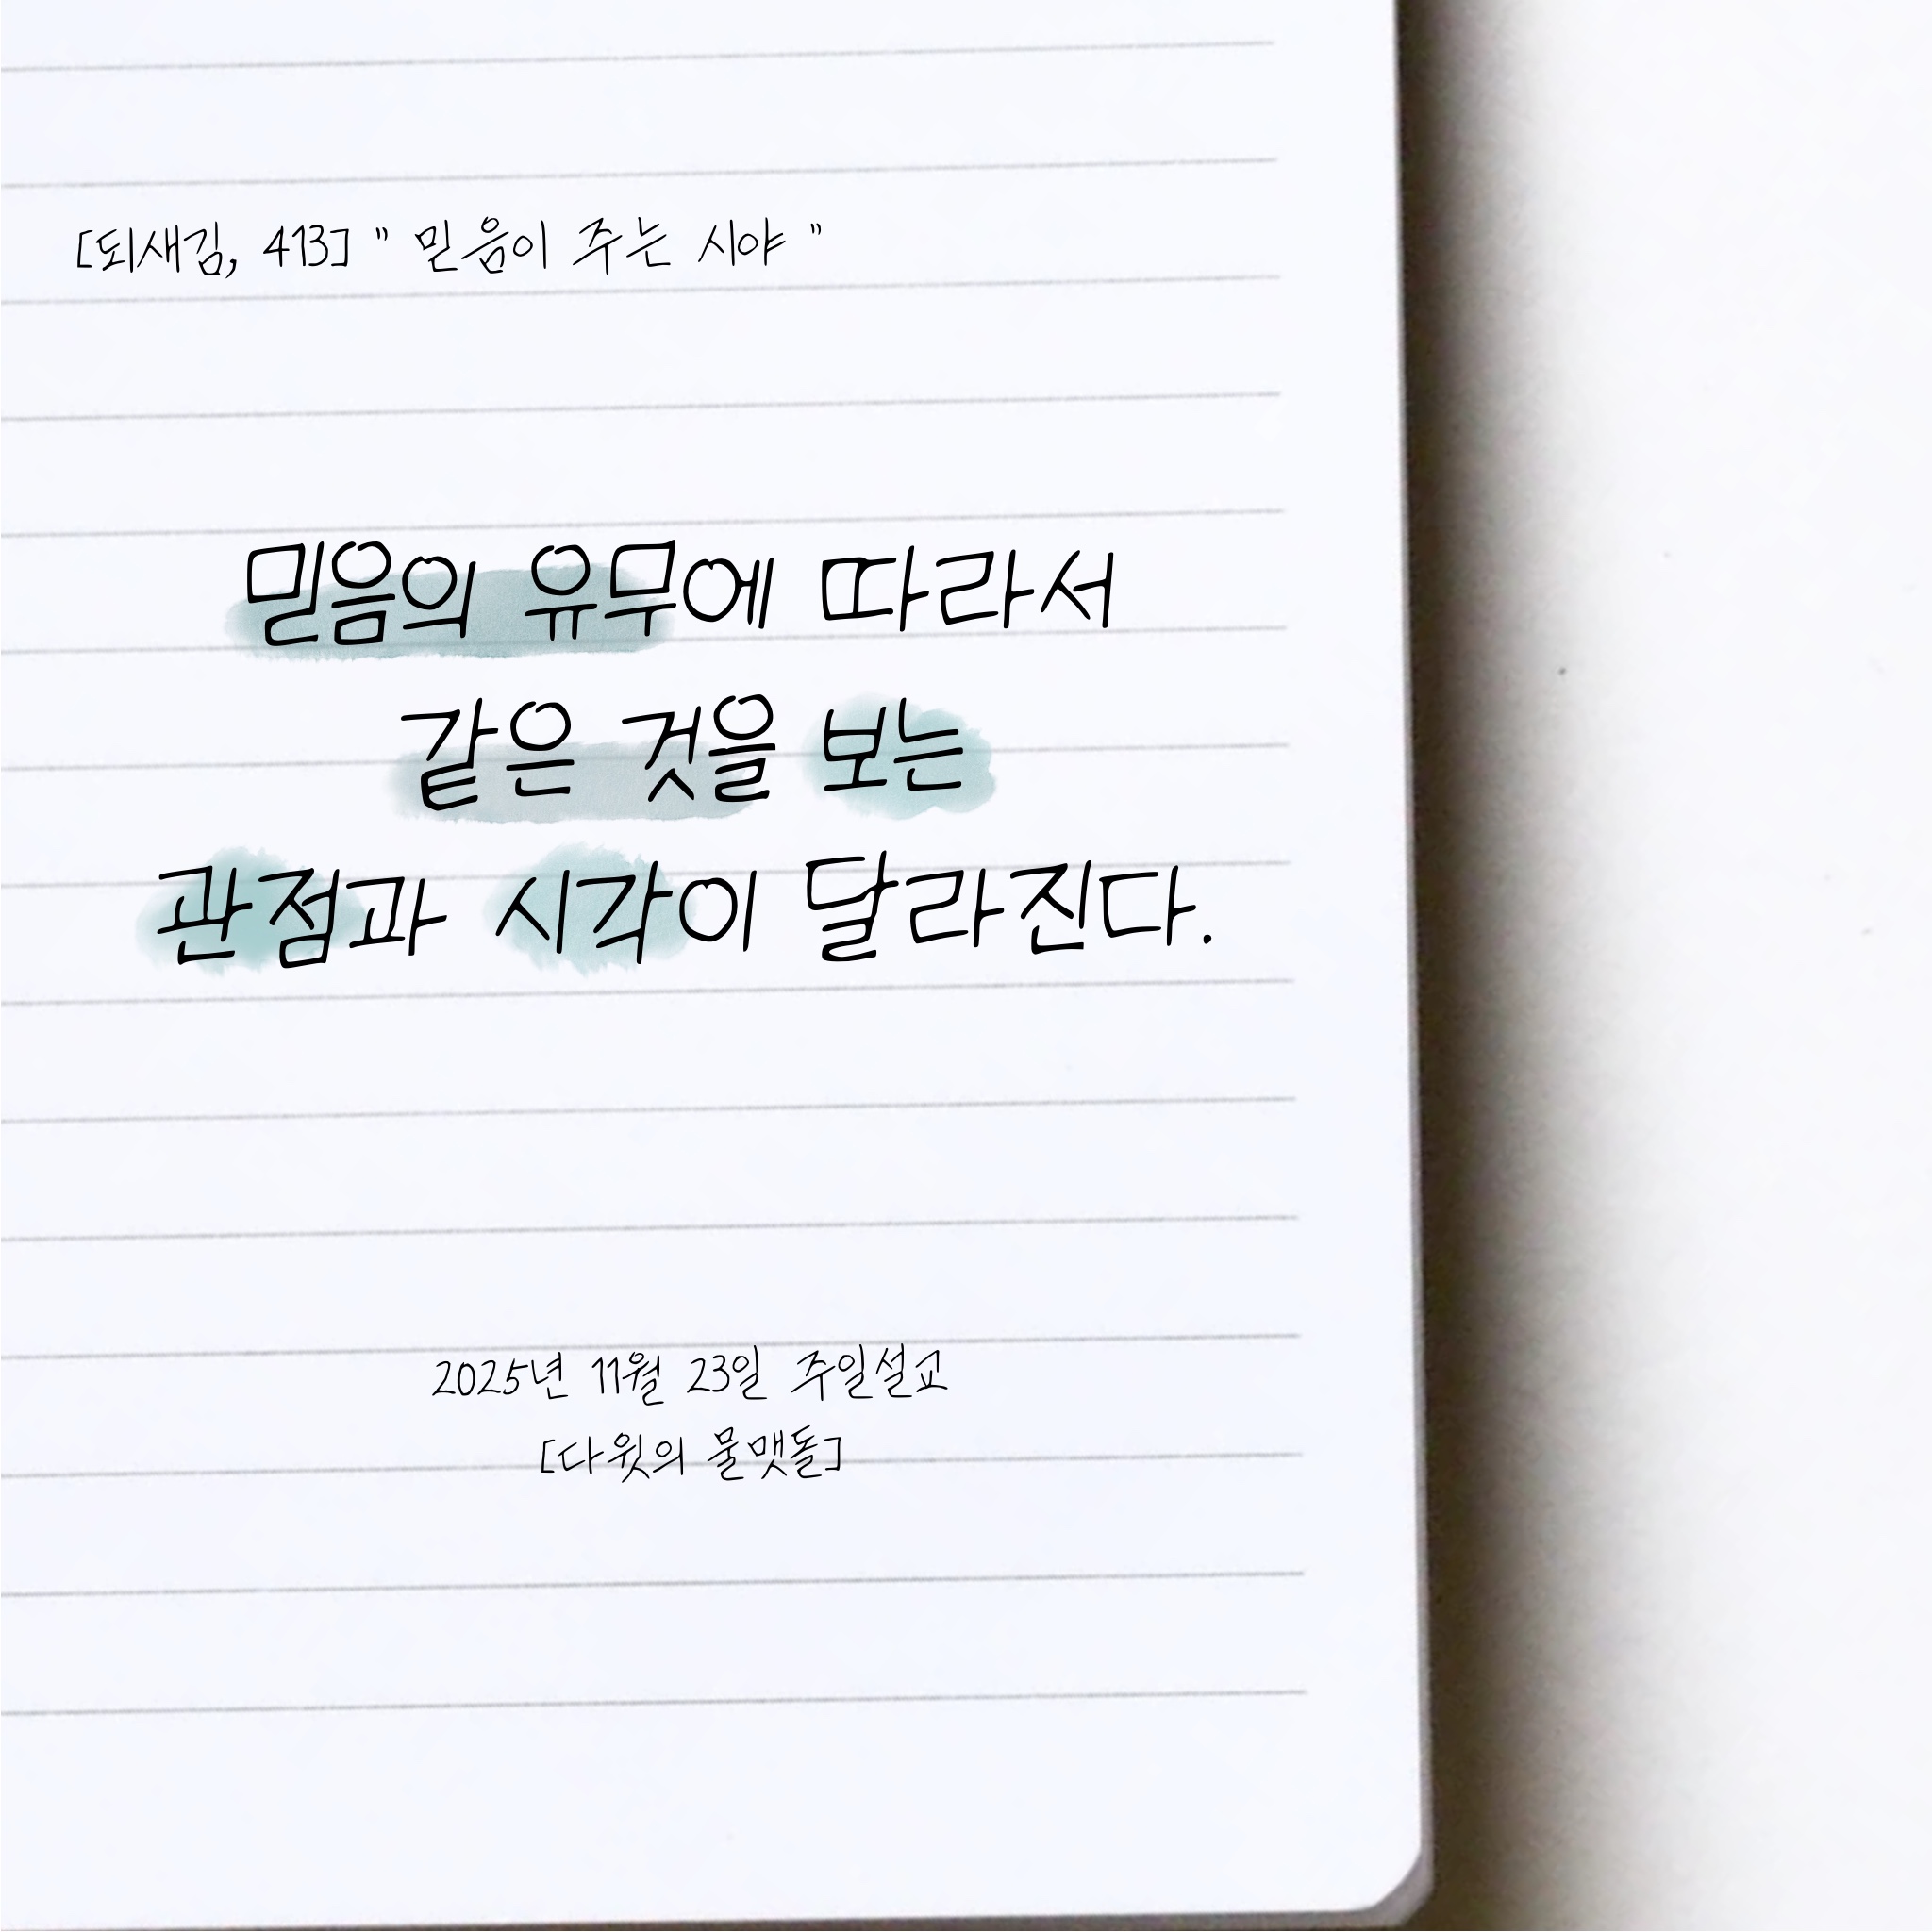 [되새김, 413] " 믿음이 주는 시야 "
믿음의 유무에 따라서
같은 것을 보는
관점과 시각이 달라진다.
2025년 11월 23일 주일설교
[다윗의 물맷돌]